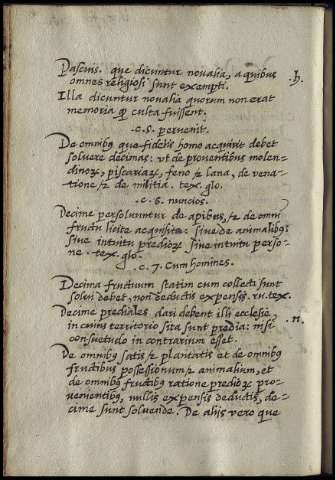 Pascuis. que dicuntur novalia, a quibus .h.
omnes religiosi sunt exempti.
Illa dicuntur novalia quorum non erat
memoria qɜ culta fuissent.
.c.5. pervenit.
De omnibꝫ que fidelis homo acquirit debet
solvere decimas: ut de proventibus molen-
dinoꝝ, piscariaꝝ, feno ⁊ lana, de vena-
tione ⁊ de militia. tex. glo.
.c.6. nuncios.
Decime persolvuntur de apibus, ⁊ de omni
fructu licite acquisito: sive de animalibꝫ
sive intuitu predioꝝ sive intuitu perso-
ne. tex. glo.
.c.7. Cum homines.
Decima fructuum statim cum collecti sunt
solvi debet, non deductis expensis. ru. tex.
Decime prediales dari debent illi ecclesie, .n.
in cuius territorio sita sunt predia: nisi
consuetudo in contrarium esset.
De omnibꝫ satis ⁊ plantatis et de omnibꝫ
fructibus possessionum ⁊ animalium, et
de omnibꝫ fructibꝫ ratione predioꝝ pro-
venientibꝫ, nullis expensis deductis, de-
cime sunt solvende. De aliis vero que